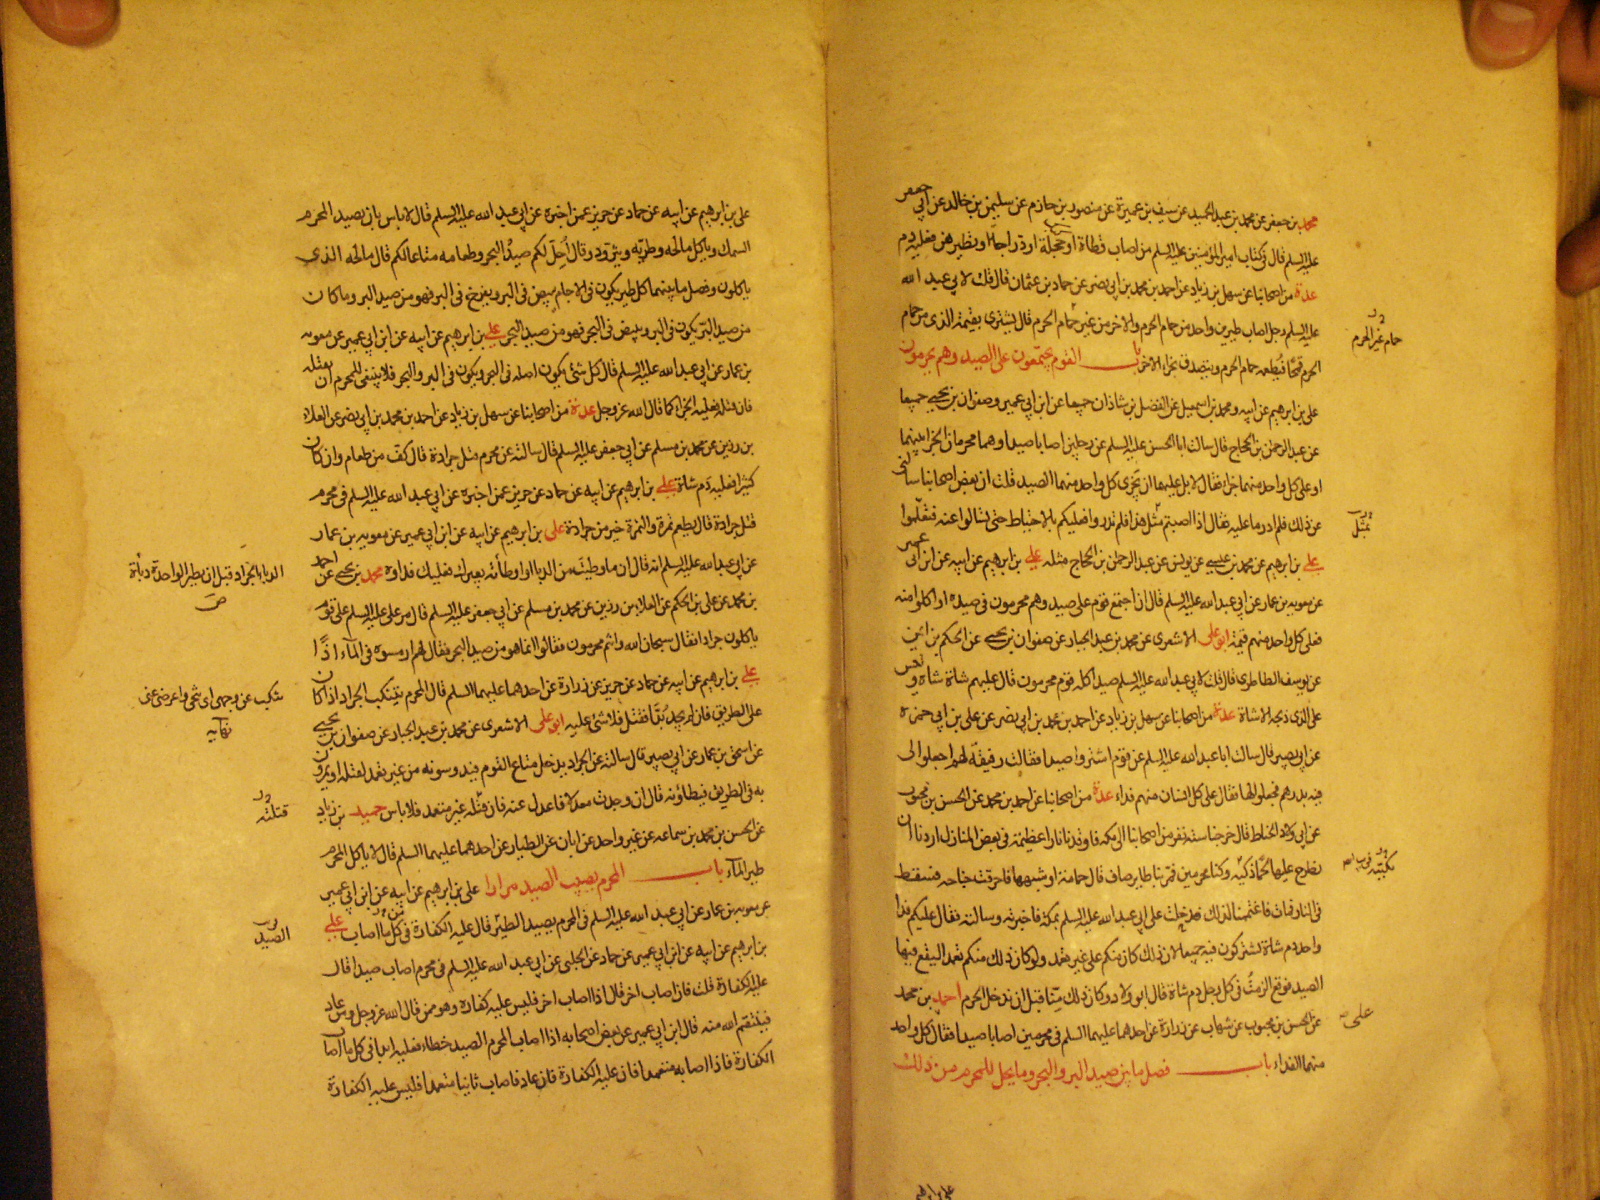 محمد بن جعفر عن محمد بن عبد الحميد عن سيف بن عميرة عن منصور بن حازم عن سليمن بن خالد عن ابي جعفر
عليه السلم قال في كتاب امير المؤمنين عليه السلم من اصاب قطاة او حجلة او دراجة او نظيرهن فعليه دم
عدة من اصحابنا عن سهل بن زياد عن احمد بن محمد بن ابي نصر عن حماد بن عثمان قال قلت لابي عبد الله
عليه السلم رجل اصاب طيرين واحد من حمام الحرم والاخر من غير حمام الحرم قال يشترى بقيمة الذي من حمام
الحرم قمحا فيطعمه حمام الحرم ويتصدق بجزاء الاخر باب القوم يجتمعون على الصيد وهم محرمون
علي بن ابرهيم عن ابيه ومحمد بن اسمعيل عن الفضل بن شاذان جميعا عن ابن ابي عمير وصفوان بن يحيى جميعا
عن عبد الرحمن بن الحجاج قال سالت ابا الحسن عليه السلم عن رجلين اصابا صيدا وهما محرمان الجزاء بينهما
او على كل واحد منهما جزاء فقال لا بل عليهما ان يجزى كل واحد منهما الصيد قلت ان بعض اصحابنا سالني
عن ذلك فلم ادر ما عليه فقال اذا اصبتم مثل هذا فلم تدروا فعليكم بالاحتياط حتى تسالوا عنه فتعلموا
علي بن ابرهيم عن محمد بن عيسى عن يونس عن عبد الرحمن بن الحجاج مثله علي بن ابرهيم عن ابيه عن ابن ابي عمير
عن معوية بن عمار عن ابي عبد الله عليه السلم قال اذا اجتمع قوم على صيد وهم محرمون في صيده او اكلوا منه
فعلى كل واحد منهم قيمته ابو علي الاشعري عن محمد بن عبد الجبار عن صفوان بن يحيى عن الحكم بن ايمن
عن يوسف الطاطري قال قلت لابي عبد الله عليه السلم صيد اكله قوم محرمون قال عليهم شاة شاة وليس
على الذي ذبحه الا شاة عدة من اصحابنا عن سهل بن زياد عن احمد بن محمد بن ابي نصر عن علي بن ابي حمزة
عن ابي بصير قال سالت ابا عبد الله عليه السلم عن قوم اشتروا صيدا فقالت رفيقة لهم اجعلوا لي
فيه بدرهم فجعلوا لها فقال على كل انسان منهم فداء عدة من اصحابنا عن احمد بن محمد عن الحسن بن محبوب
عن ابي ولاد الحناط قال خرجنا ستة نفر من اصحابنا الى مكة فاوقدنا نارا عظيمة في بعض المنازل اردنا ان
نطرح عليها لحما ذكيه وكنا محرمين فمر بنا طاير صاف قال حمامة او شبهها فاحرقت جناحه فسقط
في النار فمات فاغتممنا لذلك فدخلت على ابي عبد الله عليه السلم بمكة فاخبرته وسالته فقال عليكم فدا
واحد دم شاة تشتركون فيه جميعا لان ذلك كان منكم على غير تعمد ولو كان ذلك منكم تعمدا ليقع فيها
الصيد فوقع الزمت كل رجل دم شاة قال ابو ولاد وكان ذلك منا قبل ان ندخل الحرم احمد بن محمد
عن الحسن بن محبوب عن شهاب عن زرارة عن احدهما عليهما السلم في محرمين اصابا صيدا فقال على كل واحد
منهما الفداء باب فصل ما بين صيد البر والبحر وما يحل للمحرم من ذلك
حمام غير الحرم
بمثل
علي بن ابرهيم عن ابيه عن حماد عن حريز عمن اخبره عن ابي عبد الله عليه السلم قال لا باس بان يصيد المحرم
السمك وياكل مالحه وطريه ويتزود وقال احل لكم صيد البحر وطعامه متاعا لكم قال مالحه الذي
ياكلون وفصل ما بينهما كل طير يكون في الاجام يبيض في البر ويفرخ في البر فهو من صيد البر وما كان
من صيد البر يكون في البر ويبيض في البحر فهو من صيد البحر علي بن ابرهيم عن ابيه عن ابن ابي عمير عن معوية
بن عمار عن ابي عبد الله عليه السلم قال كل شئ يكون اصله في البحر ويكون في البر والبحر فلا ينبغي للمحرم ان يقتله
فان قتله فعليه الجزاء كما قال الله عز وجل عدة من اصحابنا عن سهل بن زياد عن احمد بن محمد بن ابي نصر عن العلاء
بن رزين عن محمد بن مسلم عن ابي جعفر عليه السلم قال سالته عن محرم قتل جرادة قال كف من طعام وان كان
كثيرا فعليه دم شاة علي بن ابرهيم عن ابيه عن حماد عن حريز عمن اخبره عن ابي عبد الله عليه السلم في محرم
قتل جرادة قال يطعم تمرة والتمرة خير من جرادة علي بن ابرهيم عن ابيه عن ابن ابي عمير عن معوية بن عمار
عن ابي عبد الله عليه السلم انه قال ان ما وطيت من الدبا او اوطأته بعيرك فعليك فداوه محمد بن يحيى عن احمد
بن محمد عن علي بن الحكم عن العلا بن رزين عن محمد بن مسلم عن ابي جعفر عليه السلم قال مر علي عليه السلم على قوم
ياكلون جرادا فقال سبحان الله وانتم محرمون فقالوا انما هو من صيد البحر فقال لهم ارمسوه في الماء اذا
علي بن ابرهيم عن ابيه عن حماد عن حريز عن زرارة عن احدهما عليهما السلم قال المحرم يتنكب الجراد اذا كان
على الطريق فان لم يجد بدا فقتل فلا شئ عليه ابو علي الاشعري عن محمد بن عبد الجبار عن صفوان بن يحيى
عن اسحق بن عمار عن ابي بصير قال سالته عن الجراد يدخل متاع القوم فيدوسونه من غير تعمد لقتله او يمرون
به في الطريق فيطاونه قال ان وجدت معدلا فاعدل عنه فان قتله غير متعمد فلا باس حميد بن زياد
عن الحسن بن محمد بن سماعه عن غير واحد عن ابان عن الطيار عن احدهما عليهما السلم قال لا ياكل المحرم
طير الماء باب المحرم يصيب الصيد مرارا علي بن ابرهيم عن ابيه عن ابن ابي عمير
عن معوية بن عمار عن ابي عبد الله عليه السلم في المحرم يصيد الطير قال عليه الكفارة في كل ما اصاب علي
بن ابرهيم عن ابيه عن ابن ابي عمير عن حماد عن الحلبي عن ابي عبد الله عليه السلم في محرم اصاب صيدا قال
عليه الكفارة قلت فان اصاب اخر قال اذا اصاب اخر فليس عليه كفارة وهو ممن قال الله عز وجل ومن عاد
فينتقم الله منه قال ابن ابي عمير عن بعض اصحابه اذا اصاب المحرم الصيد خطاء فعليه ابدا في كل ما اصاب
الكفارة فاذا اصابه متعمدا فان عليه الكفارة فان عاد فاصاب ثانيا متعمدا فليس عليه الكفارة
الدبا الجراد قبل ان يطير الواحدة دباة
ص
نهايه
قتلته
الصيد
علي بن ابرهيم